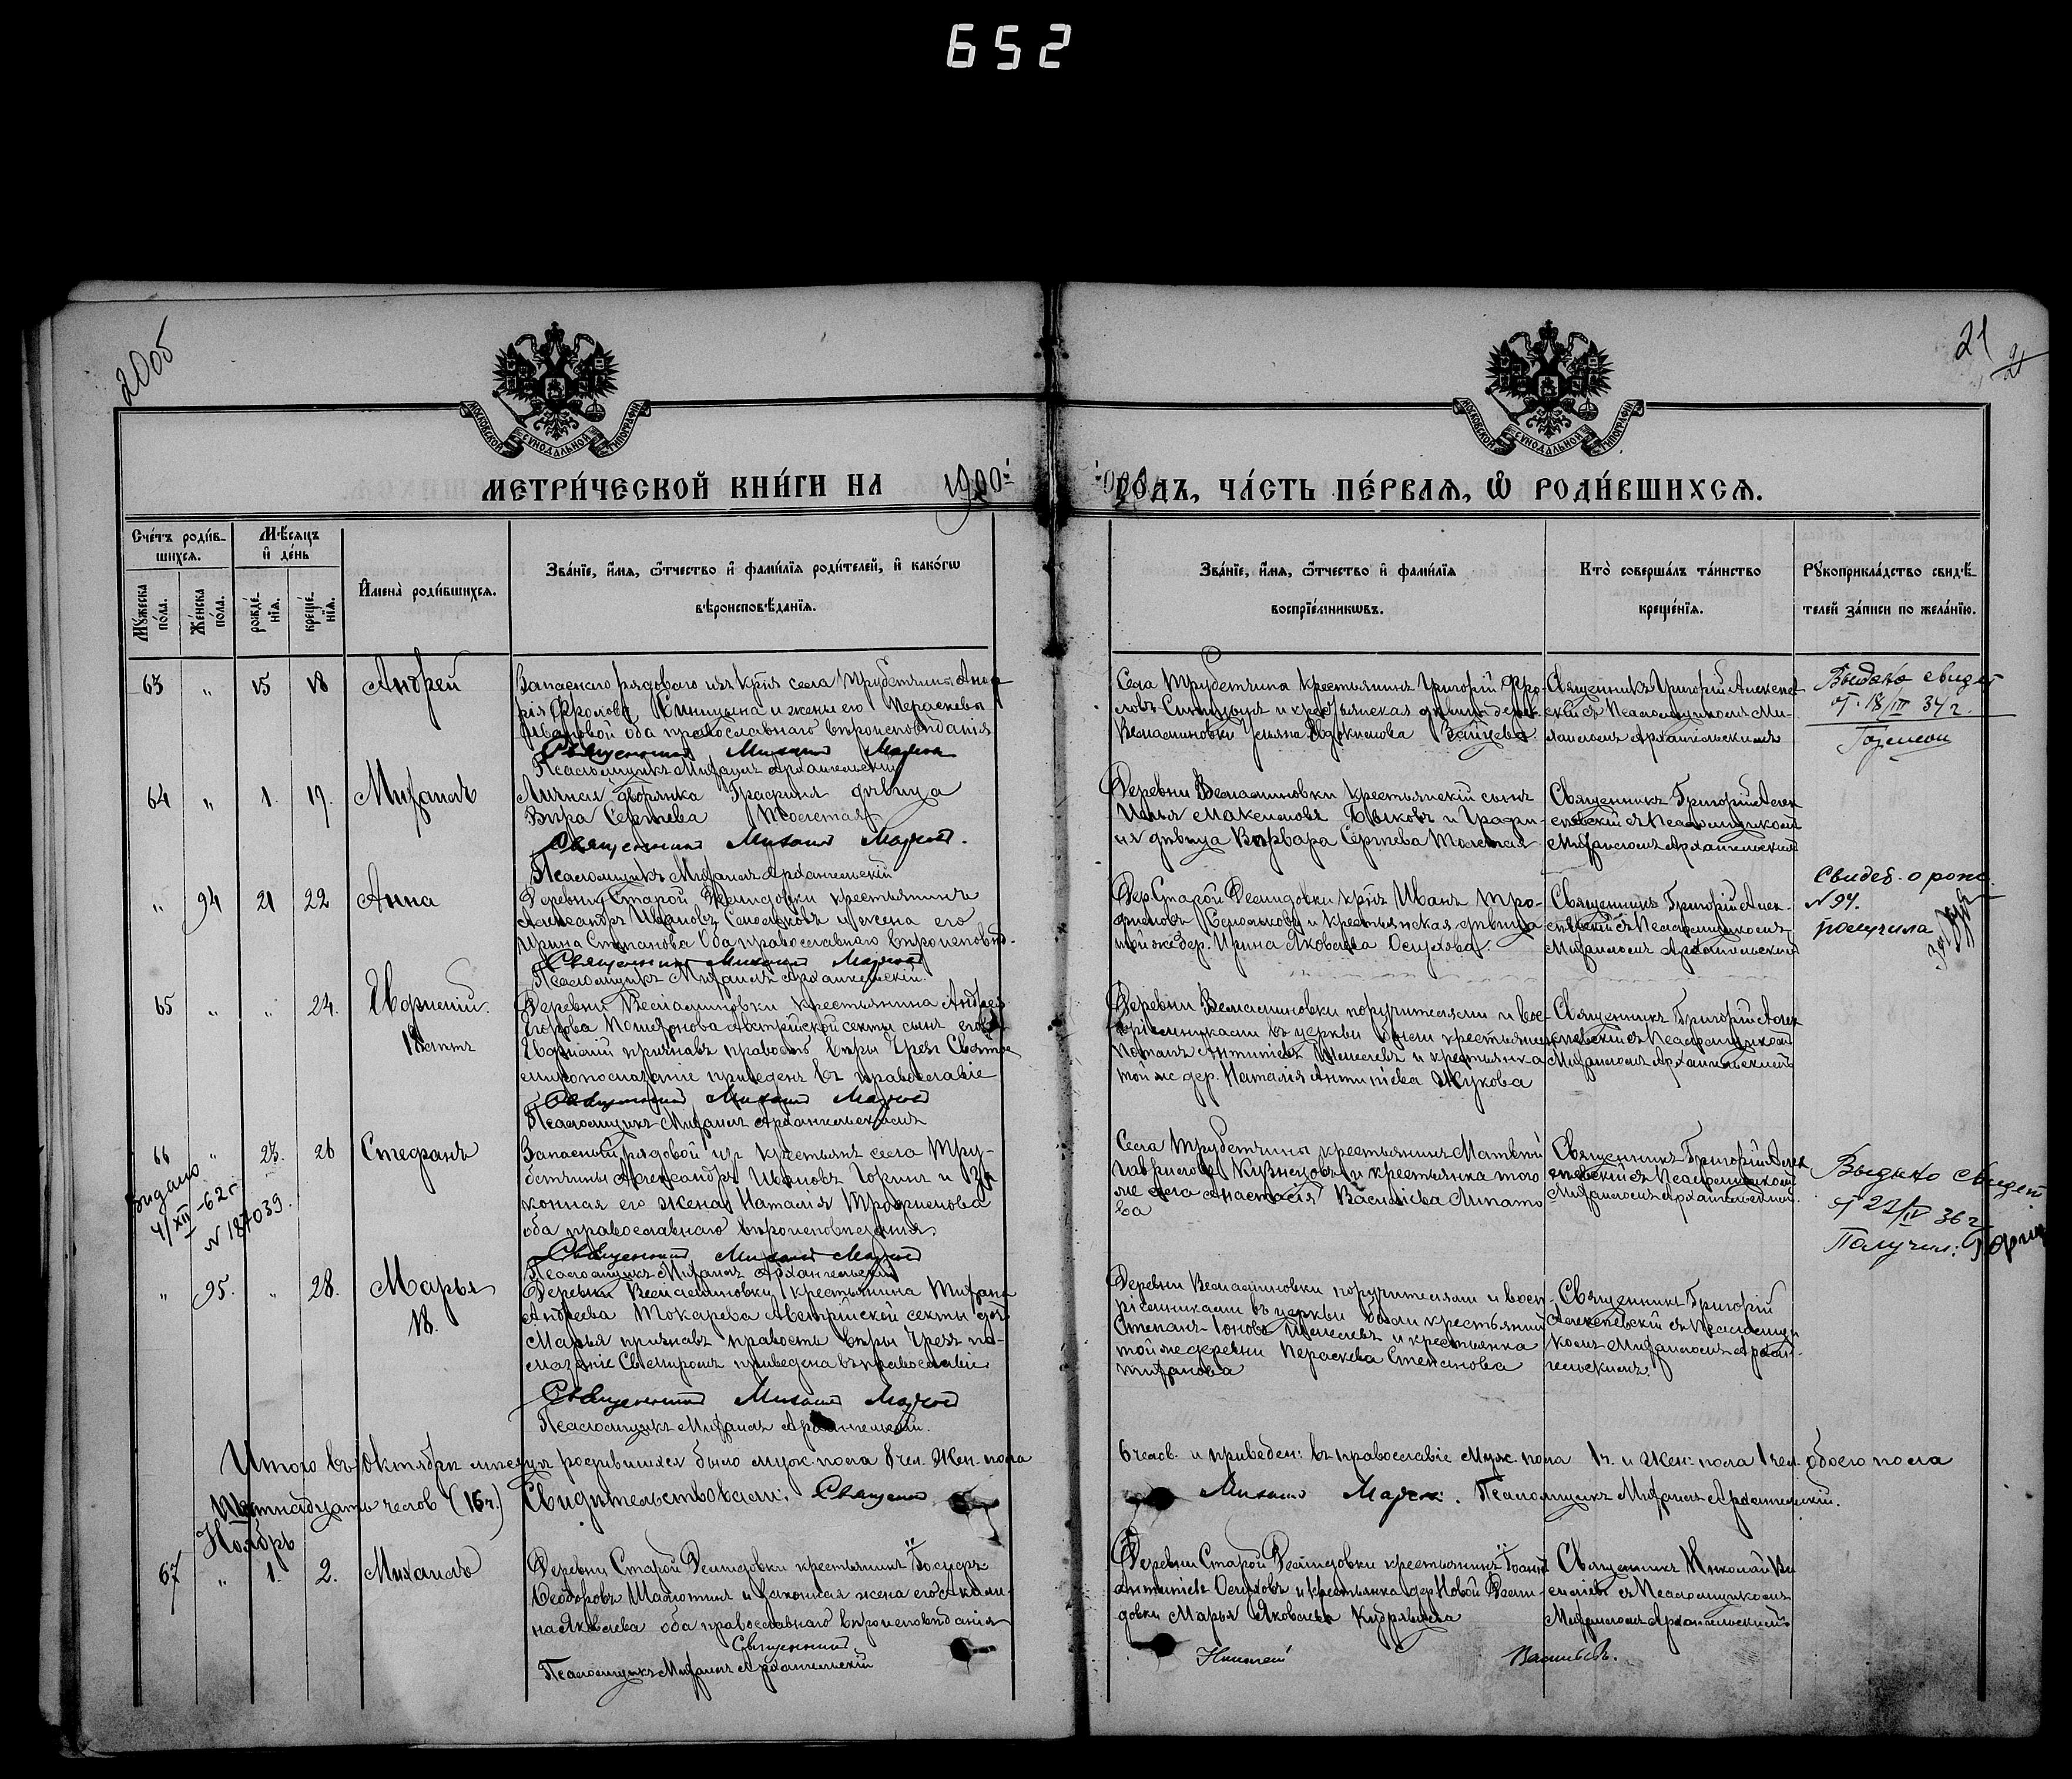 652
20об
21
21
МОСКОВСКОЙ СѴНОДАЛЬНОЙ ТИПОГРАФІИ
МОСКОВСКОЙ СѴНОДАЛЬНОЙ ТИПОГРАФІИ
МЕТРИ́ЧЕСКОЙ КНИ́ГИ НА 1900й
ГОДЪ, ЧА́СТЬ ПЕ́РВАЯ, Ѡ РОДИ́ВШИХСЯ.
Сче́тъ роди́в-
шихся.
Мѣ́сяцъ
и де́нь
Мꙋ́жеска по́ла.
Же́нска по́ла.
рожде́-
нїя.
креще́-
нїя.
Имена̀ роди́вшихся.
Зва́нїе, и́мя, ѻ́тчество и фами́лїя роди́телей, и како́гѡ
вѣроисповѣ́данїя.
Зва́нїе, и́мя, ѻ́тчество и фами́лїя
воспрїе́мникѡвъ.
Кто̀ соверша́лъ та́инство
креще́нїя.
Рꙋкоприкла́дство свидѣ́-
телей за́писи по жела́нїю.
63 " 15 18 Андрей
Запаснаго рядоваго изъ кр̃нъ села Трубетчина Анд
рія Фролова Синицына и жены его Параскевы
Ивановой оба православнаго вѣроисповѣданія
Священникъ Михаилъ
Псаломщикъ Михаилъ Архангельскій
Села Трубетчина крестьянинъ Григорій Фро-
ловъ Синицынъ и крестьянская дѣвица дерев.
Вельяминовки Ульяна Евдокимова Зайцева
Священникъ Григорій Алексе
евскій съ Псаломщикомъ Ми-
хаиломъ Архангельскимъ
Выдано свидет
от 18/III 34 г.
64 " 1. 17. Михаилъ
Личная дворянка Графиня дѣвица
Вѣра Сергѣева Толстая
Священникъ Михаилъ
Псаломщикъ Михаилъ Архангельскій
Деревни Вельяминовки крестьянскій сынъ
Илья Максимовъ Быковъ и Графи-
ня дѣвица Варвара Сергѣева Толстая
Священникъ Григорій Алек
сѣевскій съ Псаломщикомъ
Михаиломъ Архангельскимъ
" 94 21 22 Анна
Деревни Старой Демидовки крестьянинъ
Александръ Ивановъ и жена его
Ирина Степанова Оба православнаго вѣроисповѣд.
Священникъ Михаилъ
Псаломщикъ Михаилъ Архангельскій.
Дер. Старой Демидовки кр̃нъ Иванъ Тро-
фимовъ и крестьянская дѣвица
той же дер. Ирина Яковлева Осухова.
Священникъ Григорій Алек-
сѣевскій съ Псаломщикомъ
Михаиломъ Архангельскимъ
Свидет. о рожд.
N 94.
получила
65 " " 24.
18 лѣтъ
Деревни Вельяминовки крестьянина Андрея
Егорова Австрійской секты сынъ его
признавъ правость вѣры чрезъ Святое
миропомазаніе приведенъ въ православіе
Священникъ Михаилъ
Псаломщикъ Михаилъ Архангельскій
Деревни Вельяминовки поручителями и вос-
пріемниками въ церкви были крестьянинъ
Потапъ Антипіевъ и крестьянка
той же дер. Наталія Антипіева Жукова
Священникъ Григорій Алек
сѣевскій съ Псаломщикомъ
Михаиломъ Архангельскимъ
66 " 23. 26 Стефанъ
Видано
4/XII-62 г
N 187039.
Запасный рядовой изъ крестьянъ села Тру-
бетчины Александръ Ивановъ Горинъ и За
конная его жена Наталія Трофимова
оба православнаго вѣроисповѣданія.
Священникъ Михаилъ
Псаломщикъ Михаилъ Архангельскій
Села Трубетчины крестьянинъ Матвѣй
Гавриловъ Кузнецовъ и крестьянка того
же села Анастасія Васильева Липато
ва
Священникъ Григорій Алек
сѣевскій съ Псаломщикомъ
Михаиломъ Архангельскимъ.
Выдано свидет
от 27/IV 36 г.
Получил: Горин
" 95. " 28. Марья
18.
Деревни Вельяминовки крестьянина Тихона
Андреева Токарева Австрійской секты доч
Марья признавъ правость вѣры чрезъ по-
мазаніе Св. Миромъ приведена въ православіе
Священникъ Михаилъ
Псаломщикъ Михаилъ Архангельскій.
Деревни Вельяминовки поручителями и восп-
ріемниками въ церкви были крестьянинъ
Степанъ Іоновъ и крестьянка
той же деревни Параскева Степанова
Священникъ Григорій
Алексѣевскій съ Псаломщи
комъ Михаиломъ Архан-
гельскимъ.
Итого въ Октябрѣ мѣсяцѣ родившихся было муж. пола 8 чел. Жен. пола
6 челов. и приведен: въ православіе Муж. пола 1 ч. и Жен: пола 1 чел. обоего пола
Шестнадцать челов (16 ч.) Свидѣтельствовали: Священ
Михаилъ Псаломщикъ Михаилъ Архангельскій.
Ноябрь
67 " 1. 2. Михаилъ
Деревни Старой Демидовки крестьянинъ
Ѳеодоровъ и законная жена его Акили-
на Яковлева оба православнаго вѣроисповѣданія
Священникъ
Псаломщикъ Михаилъ Архангельскій
Деревни Старой Демидовки крестьянинъ Іоаннъ
Антипіевъ Осуховъ и крестьянка дер Новой Деми-
довки Марья Яковлева Кудряшева
Николай Васильевъ.
Священникъ Николай Ва
сильевъ съ Псаломщикомъ
Михаиломъ Архангельскимъ